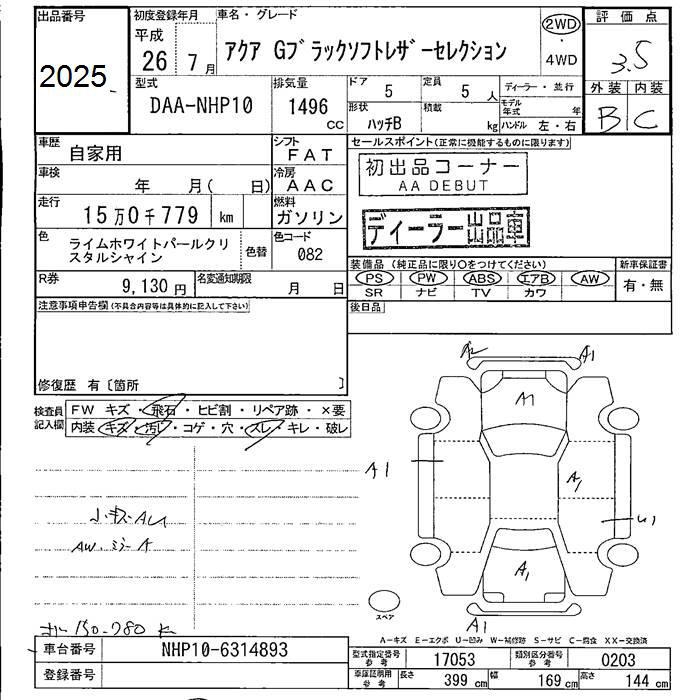 出品番号
2025
初度登録年月
平成
26年 7月
車名・グレード
アクア Gブラックソフトレザーセレクション
2WD
・
4WD
評価点
3.5
外装 内装
B C
型式
DAA-NHP10
排気量
1496
CC
ドア 5
定員 5 人
形状 ハッチB
積載 kg
ディーラー・並行
モデル年式 年
ハンドル 左・右
車歴 自家用
シフト FAT
車検 年 月( 日)
冷房 AAC
走行 15万0千779 km
燃料 ガソリン
色 ライムホワイトパールクリスタルシャイン
色替
色コード 082
R券 9,130円
名変通知期限 月 日
セールスポイント(正常に機能するものに限ります)
初出品コーナー
AA DEBUT
ディーラー出品車
装備品 (純正品に限り〇をつけてください)
新車保証書
PS PW ABS エアB AW
SR ナビ TV カワ
有・無
後日品
注意事項申告欄(不具合内容等は具体的に記入して下さい)
修復歴 有〔箇所 〕
検査員記入欄
FW キズ・飛石・ヒビ割・リペア跡・×要
内装 キズ・汚レ・コゲ・穴・スレ・キレ・破レ
小キズ
AW.ミラーA
150.780 K
A2 A1
A1
A1
A1
U1
A1
A1
スペア
A-キズ E-エクボ U-凹み W-補修跡 S-サビ C-腐食 XX-交換済
車台番号 NHP10-6314893
登録番号
型式指定番号 参考 17053
類別区分番号 参考 0203
車庫証明用 参考
長さ 399 cm
幅 169 cm
高さ 144 cm